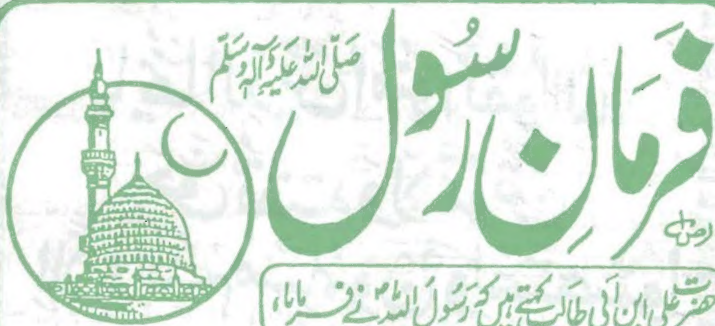 فرمانِ رسول
صَلَّی اللہ عَلَیْہِ وَآلِہٖ وَسَلَّم
حضرت علی ابن ابی طالب کہتے ہیں کہ رَسُولَ اللہؐ نے فرمایا،